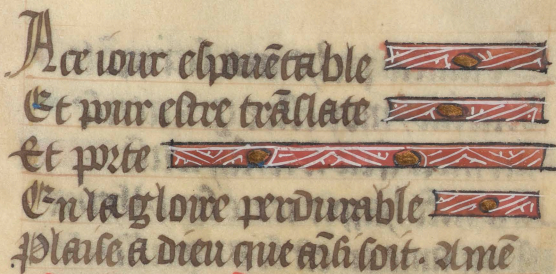 A ce iour espouētable
Et pour estre trãslate
Et porte
En la gloire perdurable
Plaise a dieu que aīsi soit. Amē